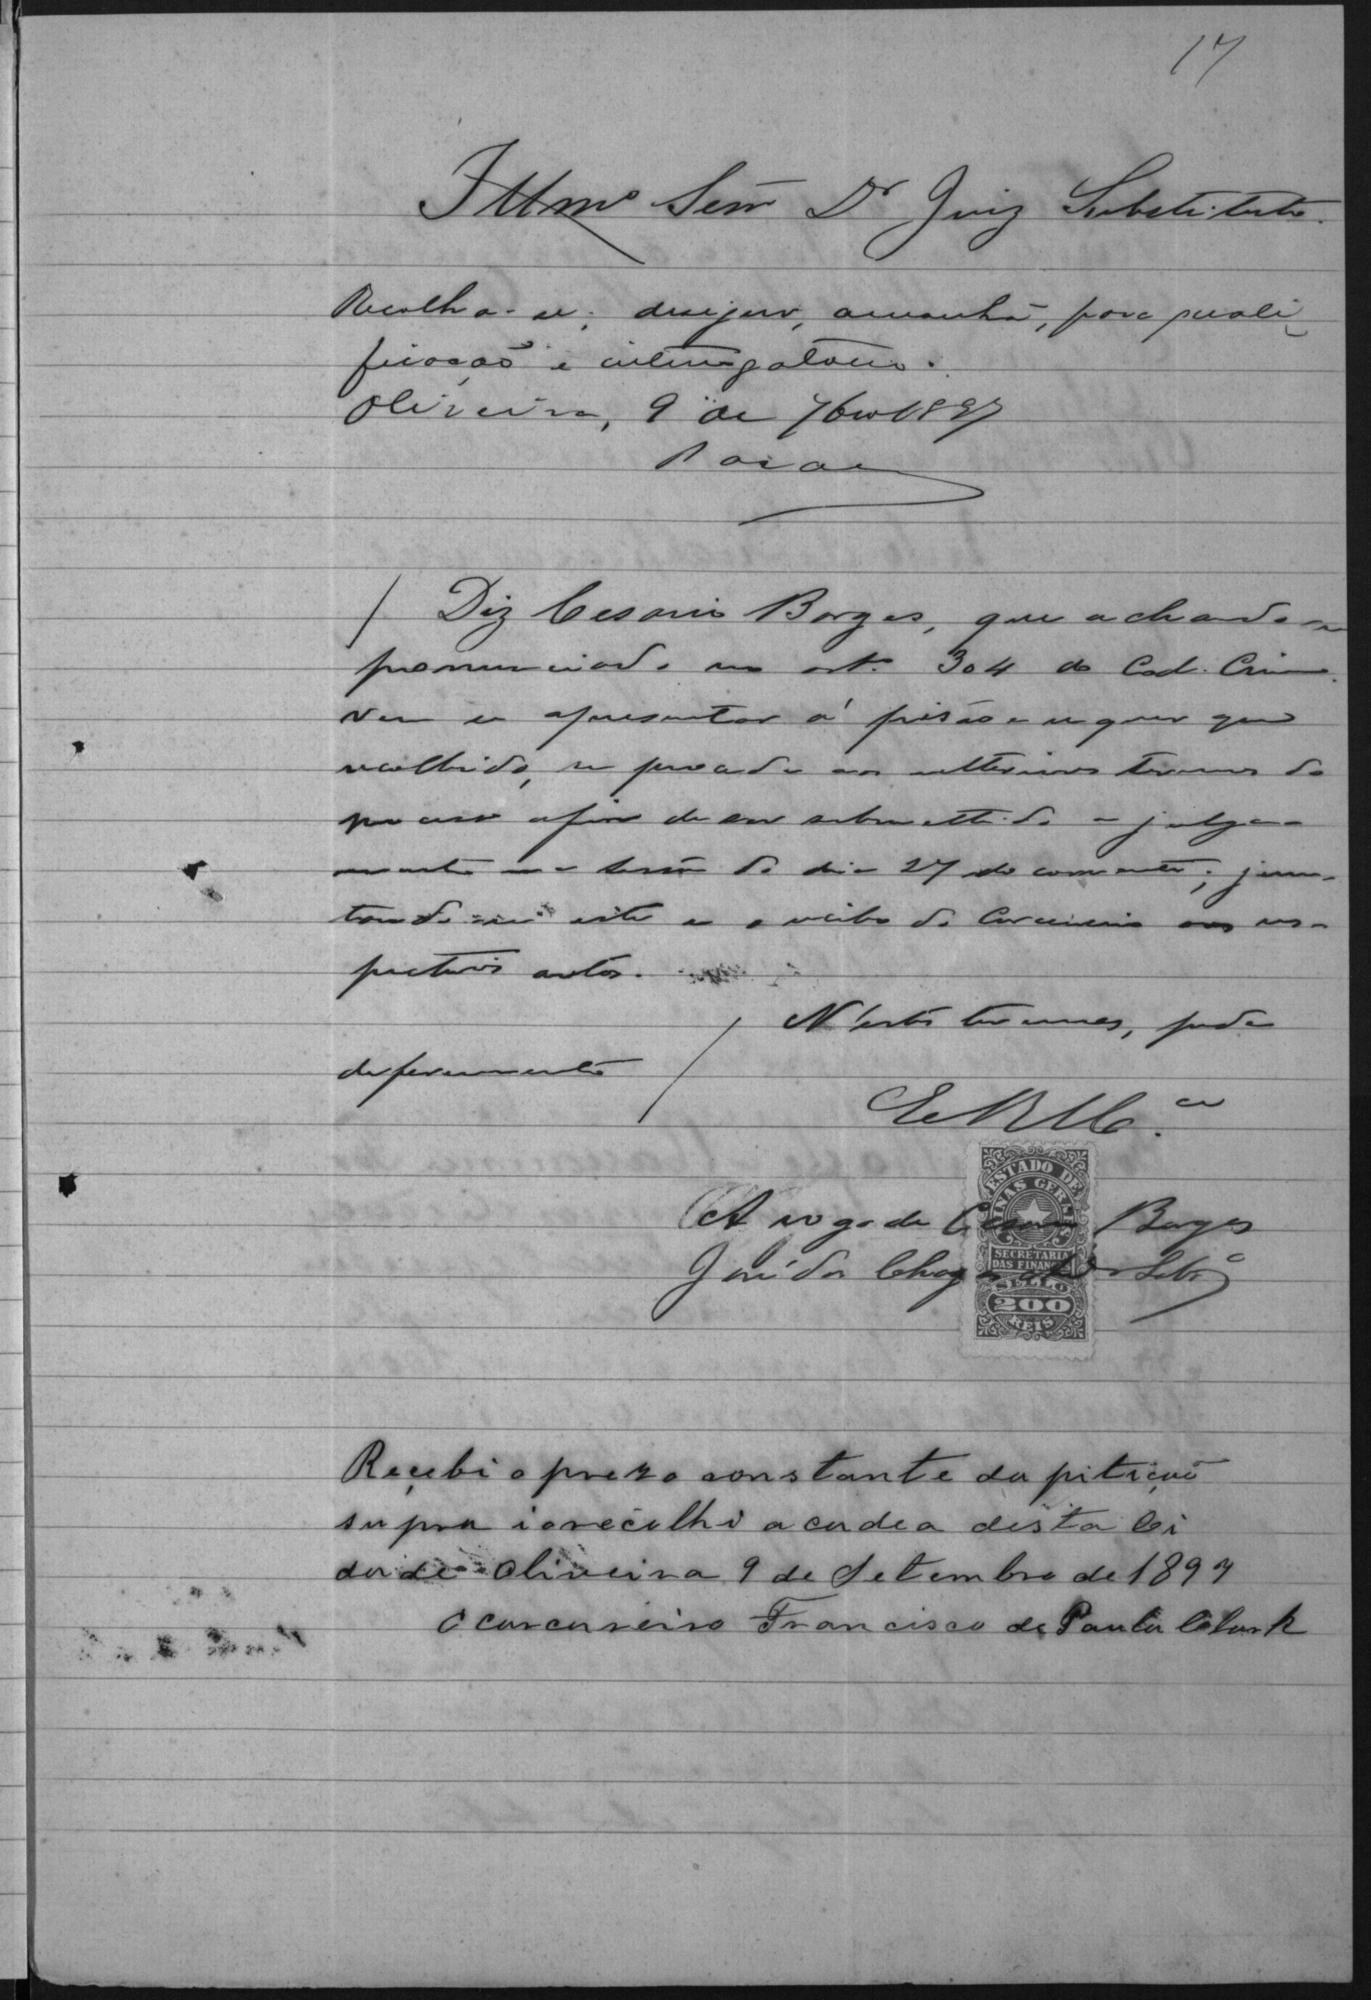 17
Illmo Senr Dr Juiz Substituto.
Recolha-se; designo, amanhã, para quali
ficação e interrogatorio.
Oliveira, 9 de 7bro 1897
Diz Cesario Borges, que achando-se
pronunciado no art. 304 do Cod. Crim.
vem se apresentar á prisão e requer que
recolhido, se proceda aos ulteriores termos do
processo afim de ser submettido a julga-
mento na sessão do dia 27 do corrente; jun-
tando-se este e o recibo do Carcereiro aos res-
pectivos autos.
N'estes termos, pede
deferimento
E R Mce
A rogo de Cesario Borges
José das Chagas
ESTADO DE
MINAS GERAES
SECRETARIA
DAS FINANÇAS
SELLO
200
REIS
Recebi o prezo constante da pitição
supra i o recolhi a cadea desta Ci
dade Oliveira 9 de Setembro de 1897
O carcareiro Francisco de Paula Clark